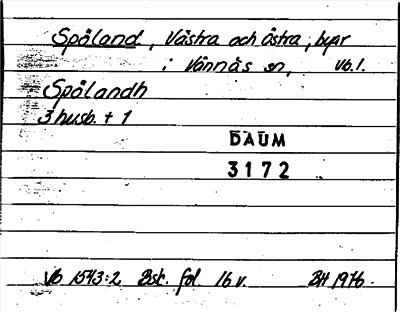 Spåland, Västra och östra, byar
i Vännäs sn, Vb.l.
Spålandh
3 husb. + 1
DAUM
3172
Vb 1543:2 Bsk. fol. 16 v. BH 1976.